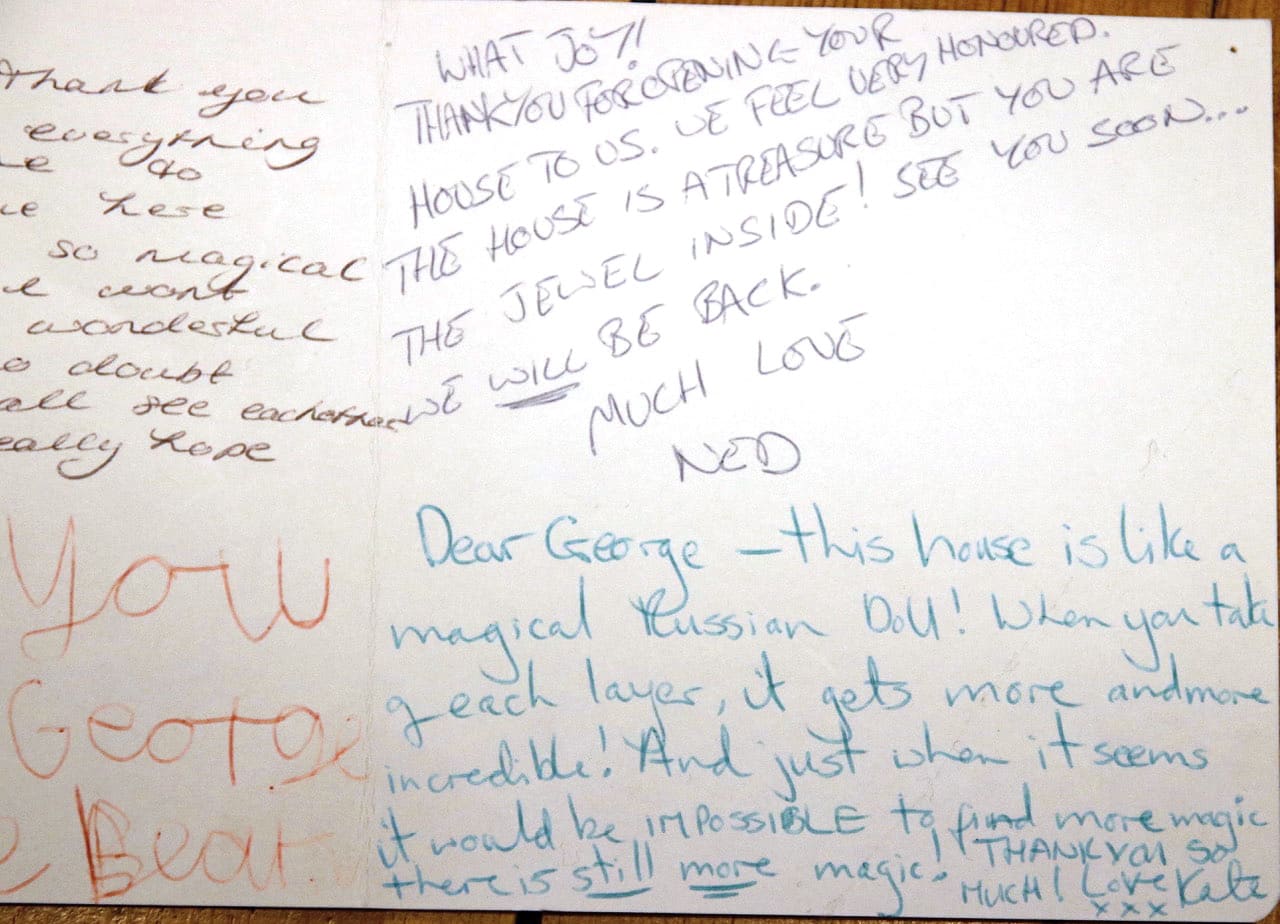 Thank you
everything
go
here
so magical
wont
wonderful
doubt
all see eachother
hope
WHAT JOY!
THANKYOU FOR OPENING YOUR
HOUSE TO US. WE FEEL VERY HONOURED.
THE HOUSE IS A TREASURE BUT YOU ARE
THE JEWEL INSIDE! SEE YOU SOON...
WE WILL BE BACK.
MUCH LOVE
NED
You
George
Bear
Dear George – this house is like a
magical Russian Doll! When you take
each layer, it gets more and more
incredible! And just when it seems
it would be IMPOSSIBLE to find more magic
there is still more magic! THANK YOU SO
MUCH! Love Kate
x x x